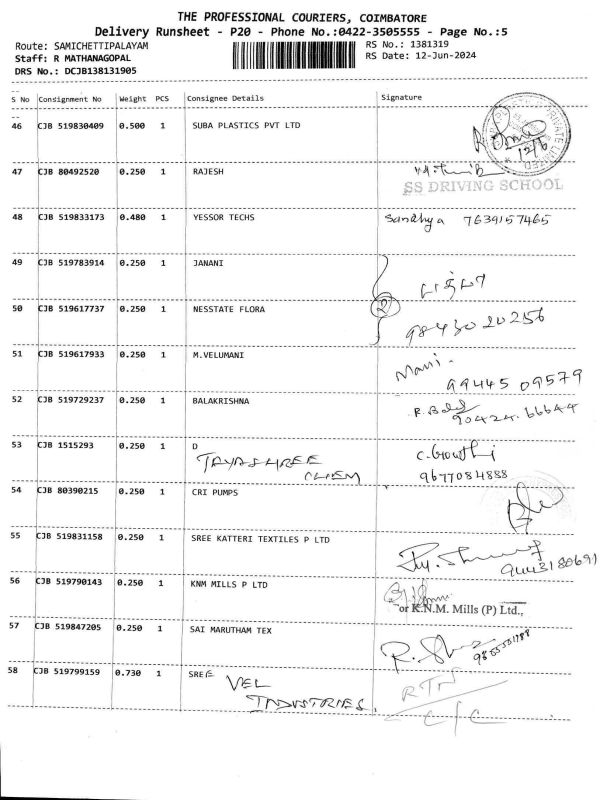 THE PROFESSIONAL COURIERS, COIMBATORE
Delivery Runsheet - P20 - Phone No.:0422-3505555 - Page No.:5
Route: SAMICHETTIPALAYAM
Staff: R MATHANAGOPAL
DRS No.: DCJB138131905
RS No.: 1381319
RS Date: 12-Jun-2024
S No Consignment No Weight PCS Consignee Details Signature
46 CJB 519830409 0.500 1 SUBA PLASTICS PVT LTD
12/6
47 CJB 80492520 0.250 1 RAJESH
SS DRIVING SCHOOL
48 CJB 519833173 0.480 1 YESSOR TECHS Sandhya 7639157465
49 CJB 519783914 0.250 1 JANANI
50 CJB 519617737 0.250 1 NESSTATE FLORA 2
98430 20256
51 CJB 519617933 0.250 1 M.VELUMANI Mani.
99445 09579
52 CJB 519729237 0.250 1 BALAKRISHNA
90424.66644
53 CJB 1515293 0.250 1 D
JAYASHREE CHEM
9677084888
54 CJB 80390215 0.250 1 CRI PUMPS
55 CJB 519831158 0.250 1 SREE KATTERI TEXTILES P LTD
9443180691
56 CJB 519790143 0.250 1 KNM MILLS P LTD
or K.N.M. Mills (P) Ltd.,
57 CJB 519847205 0.250 1 SAI MARUTHAM TEX
58 CJB 519799159 0.730 1 SREE VEL INDUSTRIES.
RTN
C/C